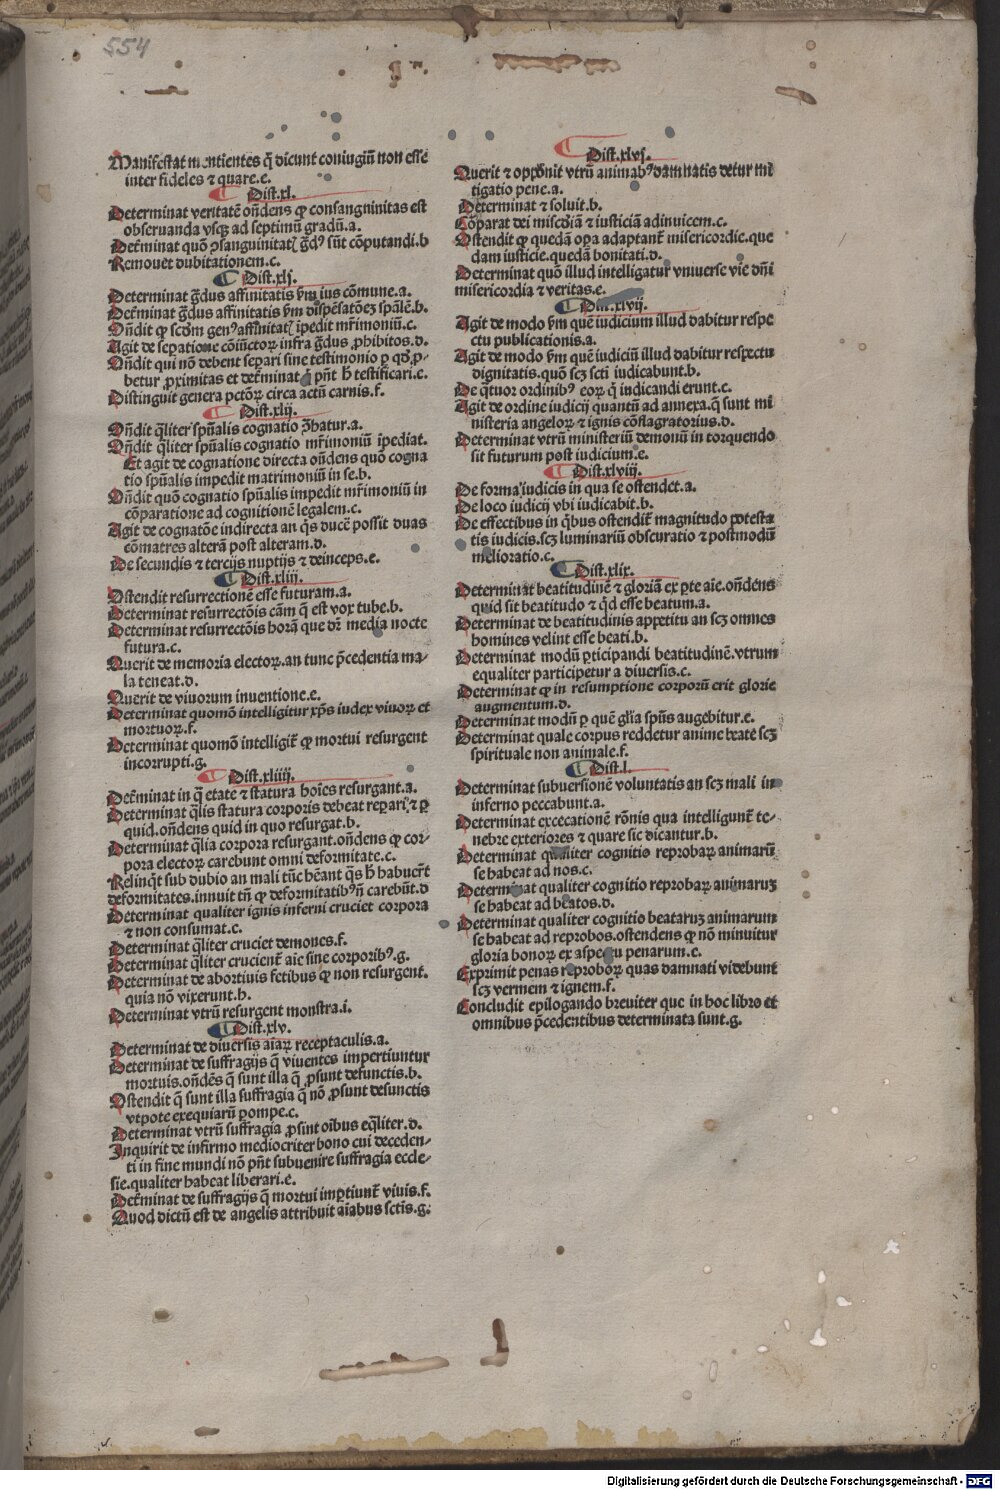 554
Manifestat mentientes q̄ dicunt coniugiū non esse
inter fideles ⁊ quare.e.
Dist.xl.
Determinat veritatē oñdens ꝙ consanguinitas est
obseruanda vsqꝫ ad septimū gradū.a.
Determinat quō ꝯsanguinitatꝭ g̃dꝰ sūt cōputandi.b
Remouet dubitationem.c.
Dist.xlj.
Determinat g̃dus affinitatis ẜm ius cōmune.a.
Det̄minat g̃dus affinitatis ẜm dispēsatōeꝫ spālē.b.
Oñdit ꝙ scdm genꝰ affinitatꝭ īpedit mr̄imoniū.c.
Agit de sepatione cōiūctoꝝ infra g̃dus ꝓhibitos.d.
Oñdit qui nō debent separi sine testimonio ⁊ qd ꝓ-
betur ꝓximitas et det̄minat q̄ pn̄t h̄ testificari.e.
Distinguit genera pctōꝝ circa actū carnis.f.
Dist.xlij.
Oñdit q̄liter spūalis cognatio ꝯ̄hatur.a.
Oñdit q̄liter spūalis cognatio mr̄imoniū īpediat.
Et agit de cognatione directa oñdens quō cogna
tio spūalis impedit matrimoniū in se.b.
Oñdit quō cognatio spūalis impedit mr̄imoniū in
cōparatione ad cognitionē legalem.c.
Agit de cognatōe indirecta an q̄s ducē possit duas
cōmatres alterā post alteram.d.
De secundis ⁊ tercijs nuptijs ⁊ deinceps.e.
Dist.xliij.
Ostendit resurrectionē esse futuram.a.
Determinat resurrectōis cām q̄ est vox tube.b.
Determinat resurrectōis horā que dr̄ media nocte
futura.c.
Querit de memoria electoꝝ.an tunc p̄cedentia ma-
la teneat.d.
Querit de viuorum inuentione.e.
Determinat quomō intelligitur xp̄s iudex viuoꝝ et
mortuoꝝ.f.
Determinat quomō intelligit̄ ꝙ mortui resurgent
incorrupti.g.
Dist.xliiij.
Det̄minat in q̄ etate ⁊ statura hoīes resurgant.a.
Determinat q̄lis statura corporis debeat repari ⁊ ꝑ
quid.oñdens quid in quo resurgat.b.
Determinat q̄lia corpora resurgant.oñdens ꝙ cor-
pora electoꝝ carebunt omni deformitate.c.
Relinq̄t sub dubio an mali tūc hēant q̄s h̄ habuer̄t
deformitates.innuit tn̄ ꝙ deformitatibꝰ n̄ carebūt.d
Determinat qualiter ignis inferni cruciet corpora
⁊ non consumat.e.
Determinat q̄liter cruciet demones.f.
Determinat q̄liter crucient̄ aīe sine corporibꝰ.g.
Determinat de abortiuis fetibus ꝙ non resurgent.
quia nō vixerunt.h.
Determinat vtrū resurgent monstra.i.
Dist.xlv.
Determinat de diuersis aīaꝝ receptaculis.a.
Determinat de suffragijs q̄ viuentes impertiuntur
mortuis.oñdēs q̄ sunt illa q̄ ꝓsunt defunctis.b.
Ostendit q̄ sunt illa suffragia q̄ nō ꝓsunt defunctis
vtpote exequiarū pompe.c.
Determinat vtrū suffragia ꝓsint oībus eq̄liter.d.
Inquirit de infirmo mediocriter bono cui deceden-
ti in fine mundi nō pn̄t subuenire suffragia eccle-
sie.qualiter habeat liberari.e.
Det̄minat de suffragijs q̄ mortui imptiunt̄ viuis.f.
Quod dictū est de angelis attribuit aīabus sctis.g.
Dist.xlvj.
Querit ⁊ opponit vtrū animabꝰ damnatis detur mi
tigatio pene.a.
Determinat ⁊ soluit.b.
Cōparat dei miscdiā ⁊ iusticiā adinuicem.c.
Ostendit ꝙ quedā opa adaptant̄ misericordie.que
dam iusticie.quedā bonitati.d.
Determinat quō illud intelligatur vniuerse vie dn̄i
misericordia ⁊ veritas.e.
Dist.xlvij.
Agit de modo ẜm quē iudicium illud dabitur respe
ctu publicationis.a.
Agit de modo ẜm quē iudiciū illud dabitur respectu
dignitatis.quō scꝫ scti iudicabunt.b.
De q̄tuor ordinibꝰ eoꝝ q̄ indicandi erunt.c.
Agit de ordine iudicij quantū ad annexa.q̄ sunt mi
nisteria angeloꝝ ⁊ ignis cōflagratorius.d.
Determinat vtrū ministeriū demonū in torquendo
sit futurum post iudicium.e.
Dist.xlviij.
De forma iudicis in qua se ostendet.a.
De loco iudicij vbi iudicabit.b.
De effectibus in q̄bus ostendit̄ magnitudo potesta
tis iudicis.scꝫ luminariū obscuratio ⁊ postmodū
melioratio.c.
Dist.xlix.
Determinat beatitudinē ⁊ gloriā ex ꝑte aīe.oñdens
quid sit beatitudo ⁊ q̄d esse beatum.a.
Determinat de beatitudinis appetitu an scꝫ omnes
homines velint esse beati.b.
Determinat modū ꝑticipandi beatitudinē.vtrum
equaliter participetur a diuersis.c.
Determinat ꝙ in resumptione corporū erit glorie
augmentum.d.
Determinat modū ꝑ quē glīa spūs augebitur.e.
Determinat quale corpus reddetur anime beate scꝫ
spirituale non animale.f.
Dist.l.
Determinat subuersionē voluntatis an scꝫ mali in
inferno peccabunt.a.
Determinat excecationē rōnis qua intelligunt̄ te-
nebre exteriores ⁊ quare sic dicantur.b.
Determinat qualiter cognitio reprobaꝝ animarū
se habeat ad nos.c.
Determinat qualiter cognitio reprobaꝝ animaruꝫ
se habeat ad beatos.d.
Determinat qualiter cognitio beataruꝫ animarum
se habeat ad reprobos.ostendens ꝙ nō minuitur
gloria bonoꝝ ex aspectu penarum.e.
Exprimit penas reproboꝝ quas damnati videbunt
scꝫ vermem ⁊ ignem.f.
Concludit epilogando breuiter que in hoc libro et
omnibus p̄cedentibus determinata sunt.g.
Digitalisierung gefördert durch die Deutsche Forschungsgemeinschaft - DFG